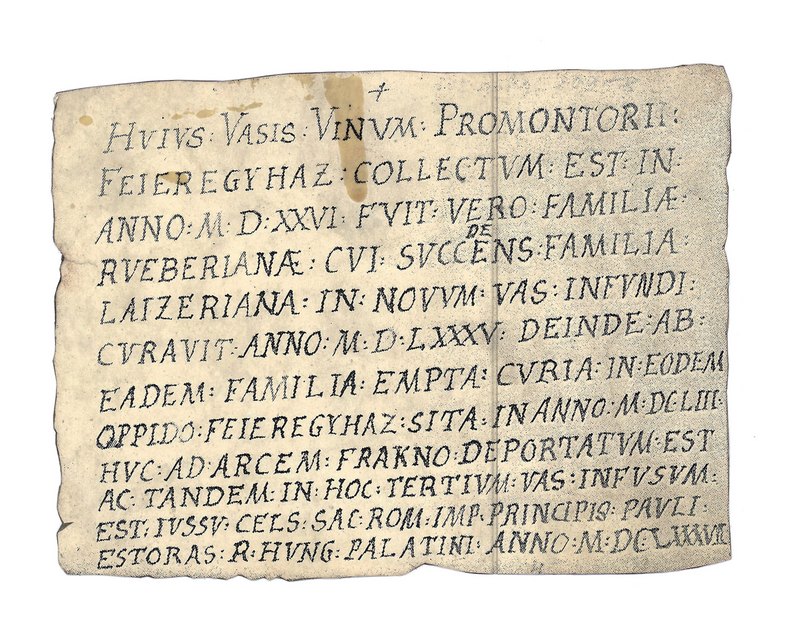 HVIVS : VASIS : VINVM : PROMONTORII :
FEIEREGYHAZ : COLLECTVM : EST : IN :
ANNO : M : D : XXVI : FVIT : VERO : FAMILIÆ :
RVEBERIANÆ : CVI : SVCCEDENS : FAMILIA :
LAIZERIANA : IN : NOVVM : VAS : INFVNDI :
CVRAVIT : ANNO : M : D : LXXXV : DEINDE : AB :
EADEM : FAMILIA : EMPTA : CVRIA : IN : EODEM
OPPIDO : FEIEREGYHAZ : SITA : IN ANNO : M : DC : LIII :
HVC : AD : ARCEM : FRAKNO : DEPORTATVM : EST
AC : TANDEM : IN : HOC : TERTIVM : VAS : INFVSVM :
EST : IVSSV : CELS : SAC : ROM : IMP : PRINCIPIS : PAVLI :
ESTORAS : R : HVNG : PALATINI : ANNO : M : DCLXXXVII